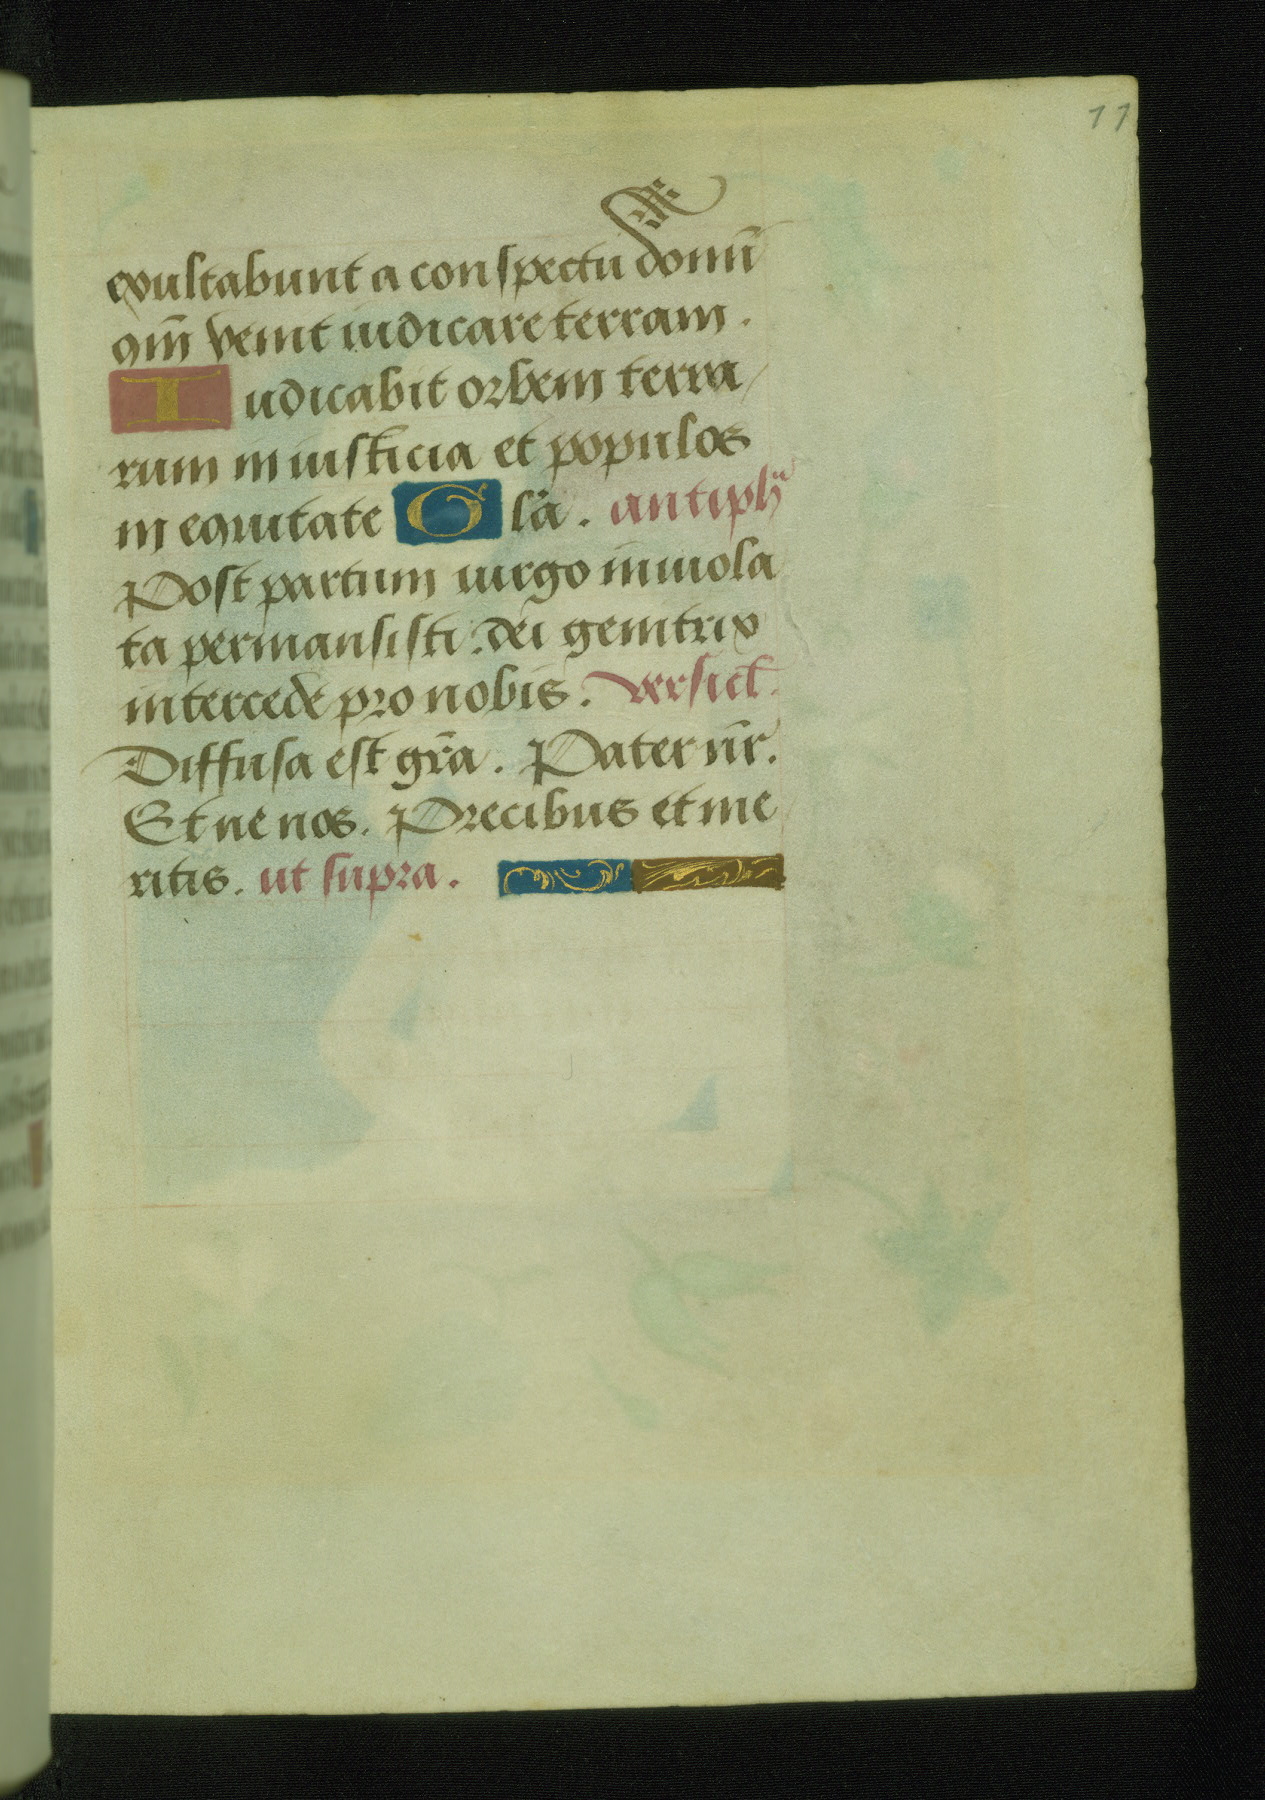 11
exultabunt a conspectu domī
qm̄ venit iudicare terram.
Iudicabit orbem terra/
rum in iusticia et populos
in equitate Gla̅. antiph̄ᵃ
Post partum virgo inviola
ta permansisti: dei genitrix
intercede pro nobis. versicl̄.
Diffusa est gr̄a. Pater nr̄.
Et ne nos. Precibus et me
ritis. ut supra.